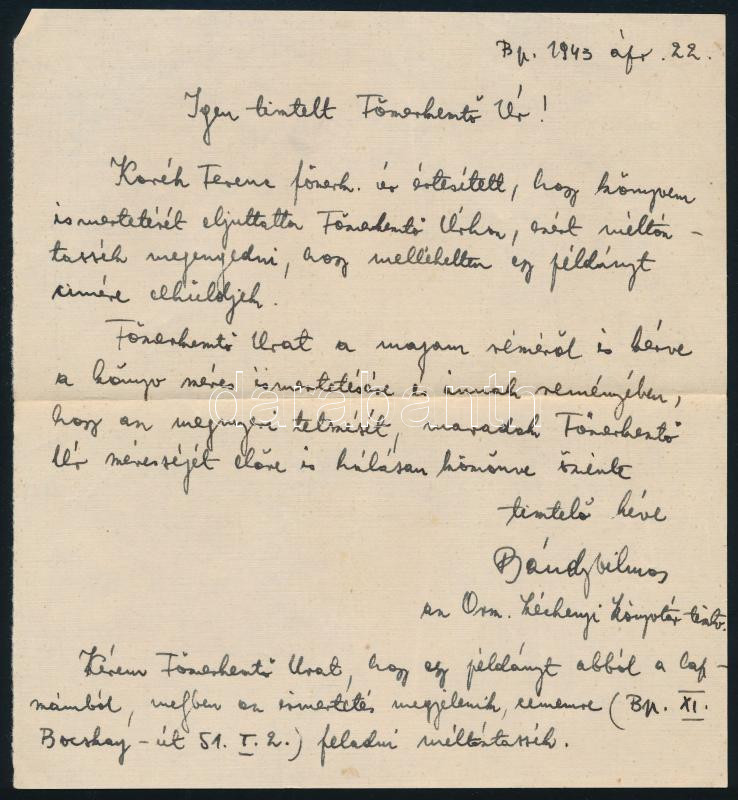 Bp. 1943 ápr. 22.
Igen tisztelt Főszerkesztő Úr!
Koréh Ferenc főszerk. úr értesített, hogy könyvem
ismertetését eljuttatta Főszerkesztő Úrhoz, ezért méltóz-
tassék megengedni, hogy mellékelten egy példányt
címére elküldjek.
Főszerkesztő Urat a magam részéről is kérve
a könyv szíves ismertetésére és annak reményében,
hogy az megnyeri tetszését, maradok Főszerkesztő
Úr szívességét előre is hálásan köszönve őszinte
tisztelő híve
Bándy Vilmos
az Orsz. Széchenyi Könyvtár tisztv.
Kérem Főszerkesztő Urat, hogy egy példányt abból a lap-
számból, melyben az ismertetés megjelenik, címemre (Bp. XI.
Bocskay-út 51. I. 2.) feladni méltóztassék.
darabanth